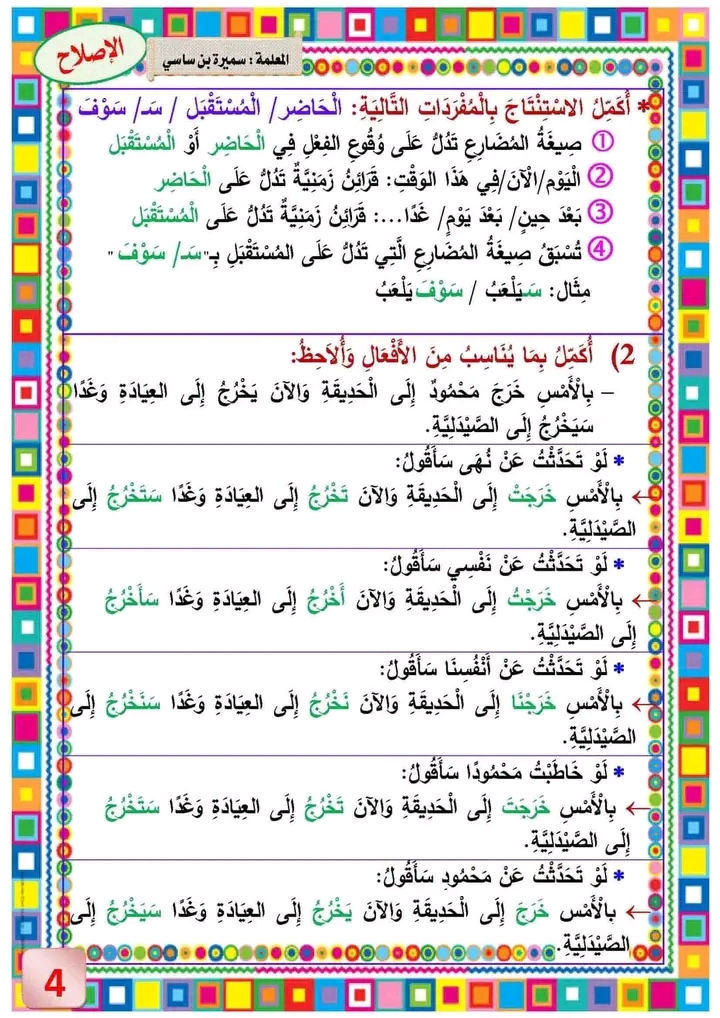 الإصلاح
المعلمة : سميرة بن ساسي
* أُكَمِّلُ الاسْتِنْتَاجَ بِالْمُفْرَدَاتِ التَّالِيَةِ: الْحَاضِر/ الْمُسْتَقْبَل / سَـ/ سَوْفَ
① صِيغَةُ المُضَارِعِ تَدُلُّ عَلَى وُقُوعِ الفِعْلِ فِي الْحَاضِرِ أَوْ الْمُسْتَقْبَلِ
② الْيَوْم/الْآنَ/فِي هَذَا الوَقْتِ: قَرَائِنُ زَمَنِيَّةٌ تَدُلُّ عَلَى الْحَاضِرِ
③ بَعْدَ حِينٍ/ بَعْدَ يَوْمٍ/ غَدًا...: قَرَائِنُ زَمَنِيَّةٌ تَدُلُّ عَلَى الْمُسْتَقْبَلِ
④ تُسْبَقُ صِيغَةُ المُضَارِعِ الَّتِي تَدُلُّ عَلَى المُسْتَقْبَلِ بِـ"سَـ/ سَوْفَ "
مِثَال: سَيَلْعَبُ / سَوْفَ يَلْعَبُ
2) أُكَمِّلُ بِمَا يُنَاسِبُ مِنَ الأَفْعَالِ وَأُلَاحِظُ:
– بِالْأَمْسِ خَرَجَ مَحْمُودٌ إِلَى الْحَدِيقَةِ وَالآنَ يَخْرُجُ إِلَى العِيَادَةِ وَغَدًا
سَيَخْرُجُ إِلَى الصَّيْدَلِيَّةِ.
* لَوْ تَحَدَّثْتُ عَنْ نُهَى سَأَقُولُ:
← بِالْأَمْسِ خَرَجَتْ إِلَى الْحَدِيقَةِ وَالآنَ تَخْرُجُ إِلَى العِيَادَةِ وَغَدًا سَتَخْرُجُ إِلَى
الصَّيْدَلِيَّةِ.
* لَوْ تَحَدَّثْتُ عَنْ نَفْسِي سَأَقُولُ:
← بِالْأَمْسِ خَرَجْتُ إِلَى الْحَدِيقَةِ وَالآنَ أَخْرُجُ إِلَى العِيَادَةِ وَغَدًا سَأَخْرُجُ
إِلَى الصَّيْدَلِيَّةِ.
* لَوْ تَحَدَّثْتُ عَنْ أَنْفُسِنَا سَأَقُولُ:
← بِالْأَمْسِ خَرَجْنَا إِلَى الْحَدِيقَةِ وَالآنَ نَخْرُجُ إِلَى العِيَادَةِ وَغَدًا سَنَخْرُجُ إِلَى
الصَّيْدَلِيَّةِ.
* لَوْ خَاطَبْتُ مَحْمُودًا سَأَقُولُ:
← بِالْأَمْسِ خَرَجْتَ إِلَى الْحَدِيقَةِ وَالآنَ تَخْرُجُ إِلَى العِيَادَةِ وَغَدًا سَتَخْرُجُ
إِلَى الصَّيْدَلِيَّةِ.
* لَوْ تَحَدَّثْتُ عَنْ مَحْمُودِ سَأَقُولُ:
← بِالْأَمْس خَرَجَ إِلَى الْحَدِيقَةِ وَالآنَ يَخْرُجُ إِلَى العِيَادَةِ وَغَدًا سَيَخْرُجُ إِلَى
الصَّيْدَلِيَّةِ.
4